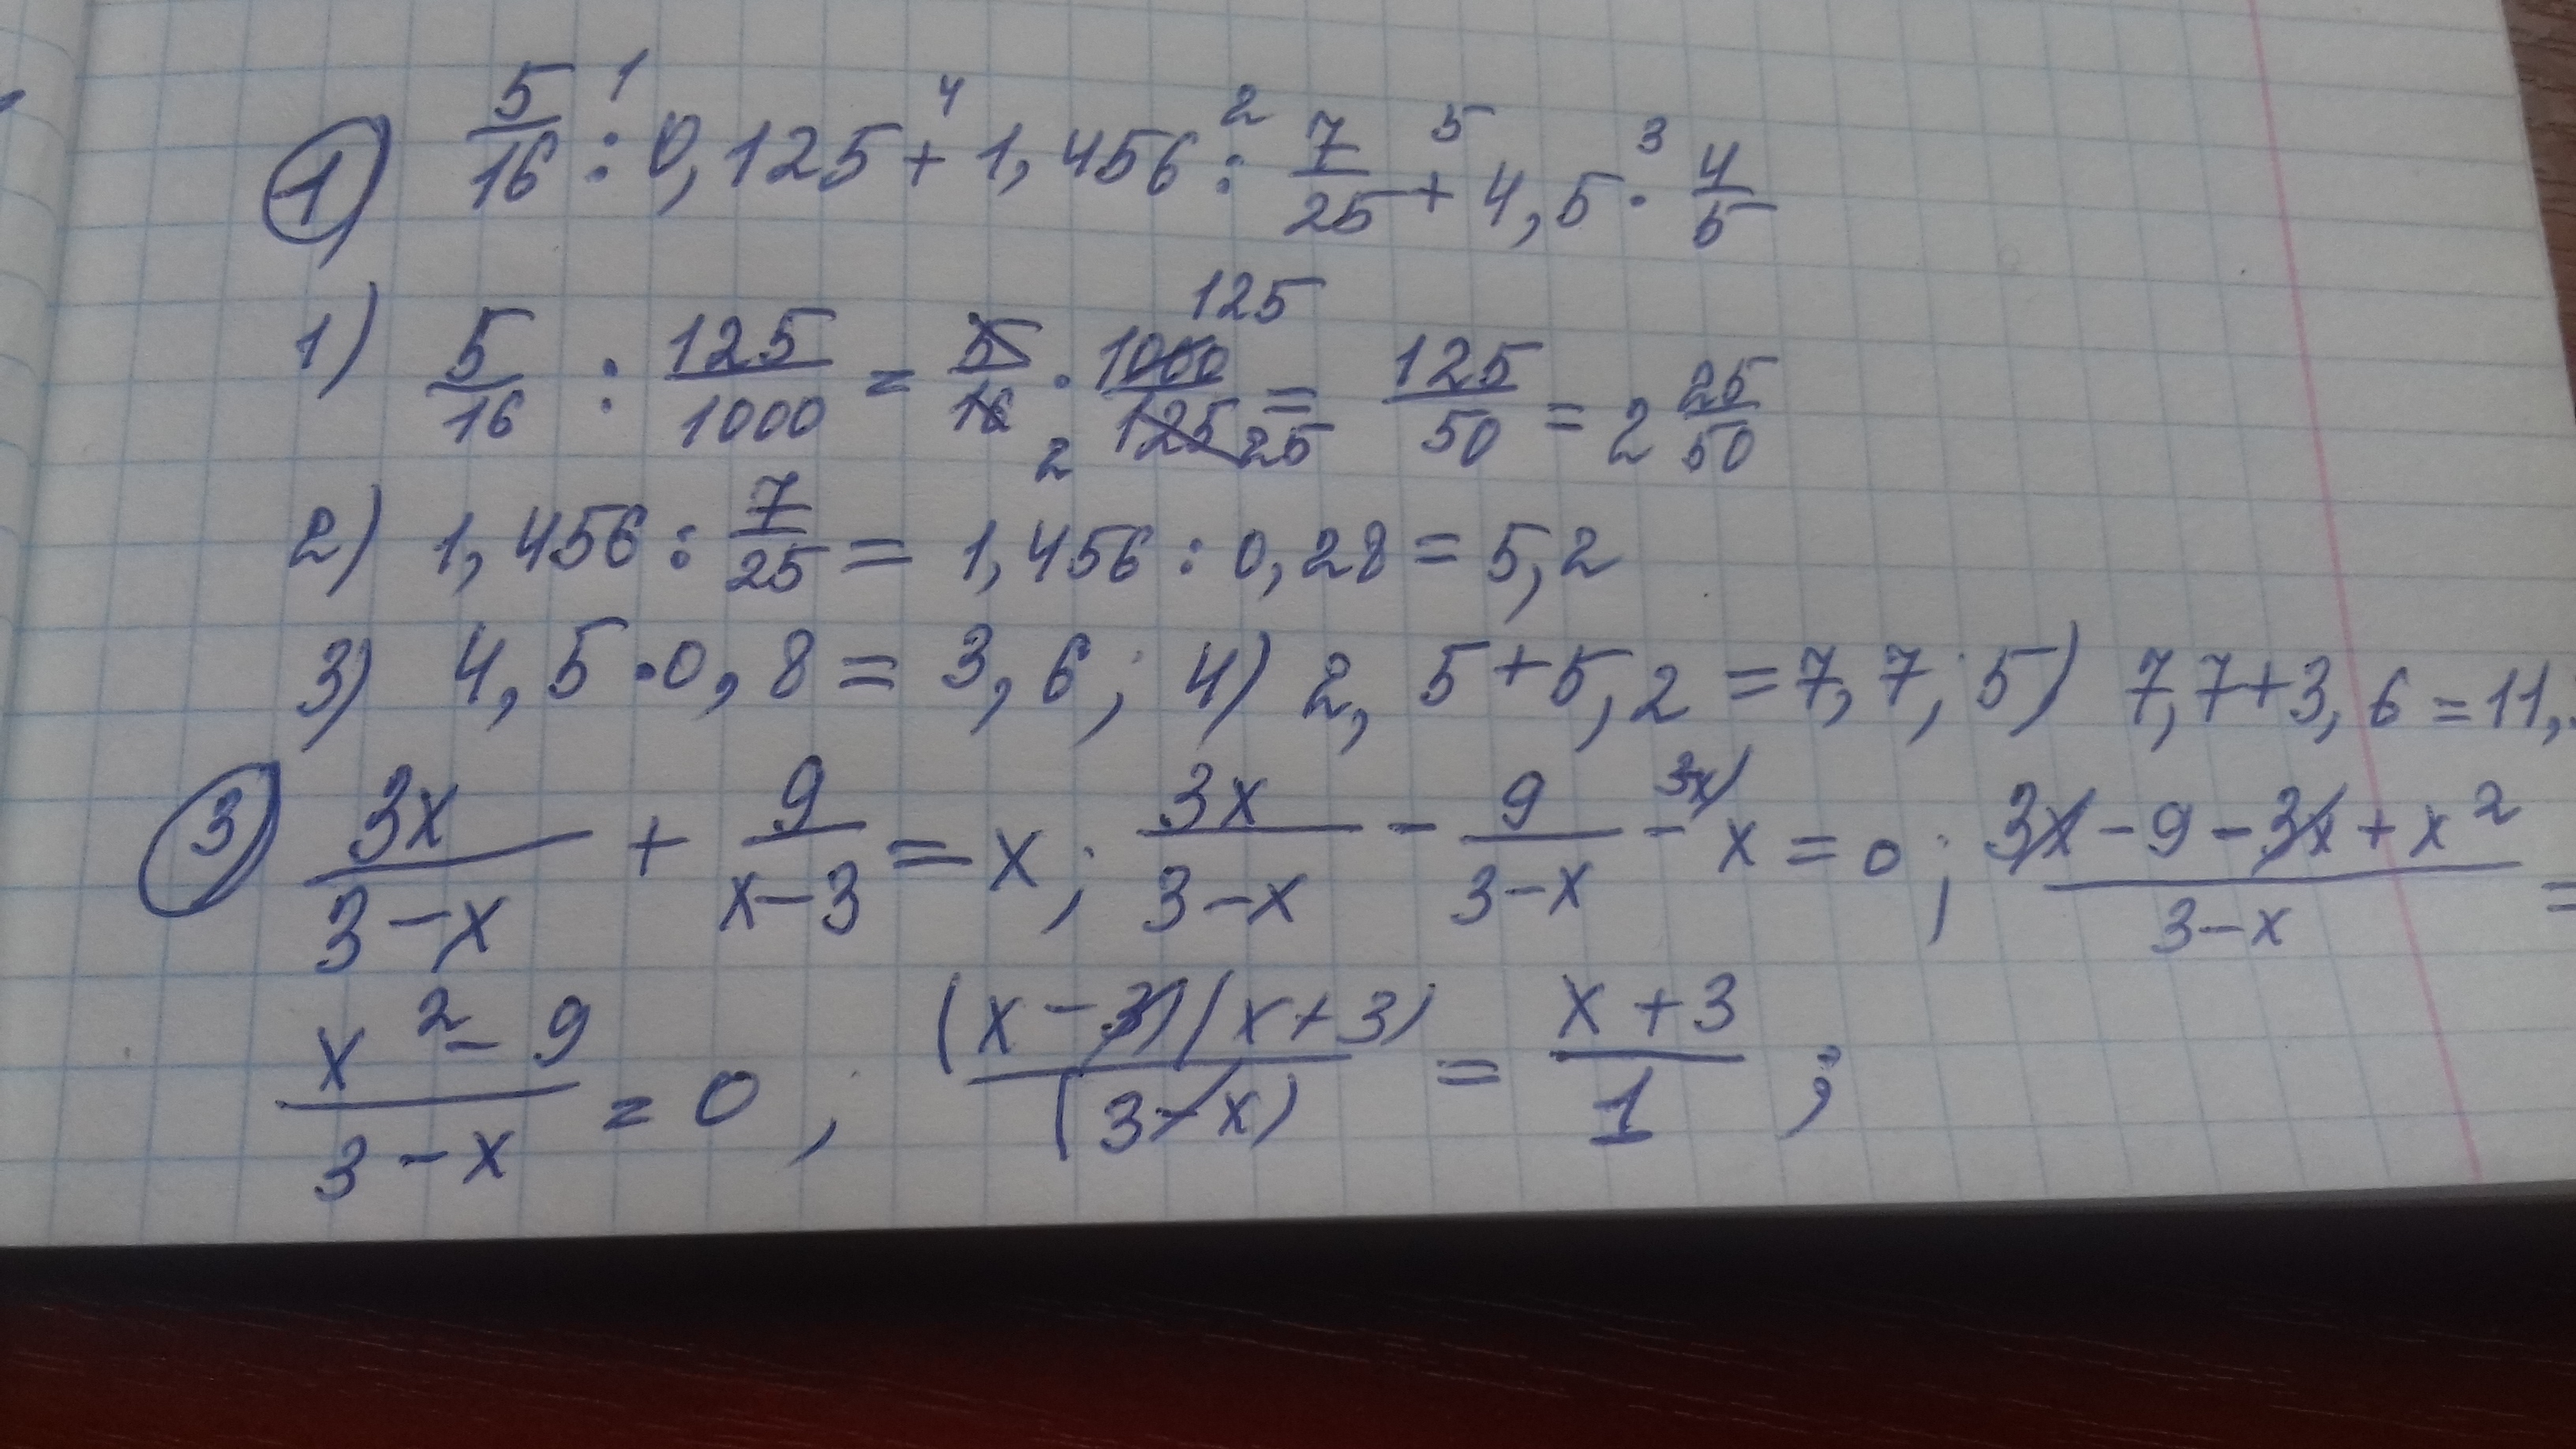 ① 5/16 : 0,125 + 1,456 : 7/25 + 4,5 · 4/5
1 4 2 5 3
1) 5/16 : 125/1000 = 5/16 · 1000/125 = 125/50 = 2 25/50
125
2 25
2) 1,456 : 7/25 = 1,456 : 0,28 = 5,2
3) 4,5 · 0,8 = 3,6 ; 4) 2,5 + 5,2 = 7,7 ; 5) 7,7 + 3,6 = 11,
③ 3x/(3-x) + 9/(x-3) = x ; 3x/(3-x) - 9/(3-x) - x = 0 ; (3x - 9 - 3x + x²)/(3-x) =
(x² - 9)/(3-x) = 0 , (x-3)(x+3)/(3-x) = (x+3)/1 ;